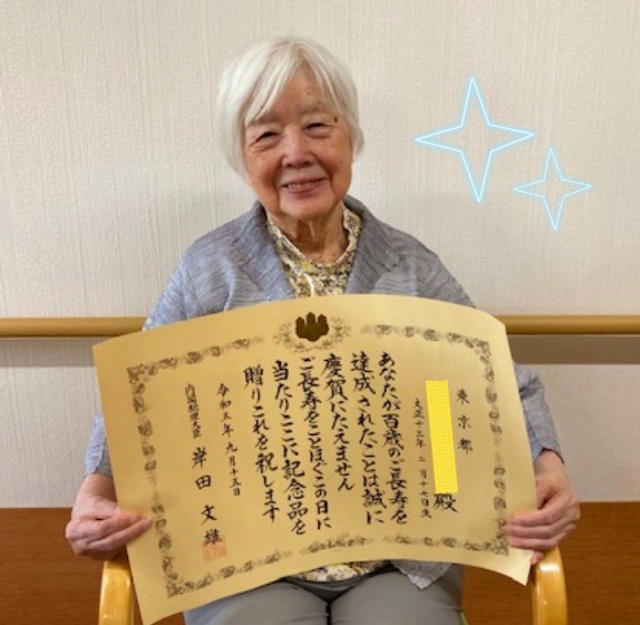 東京都
殿
大正十三年 二月十七日生
あなたが百歳のご長寿を
達成されたことは誠に
慶賀にたえません
ご長寿をことほぐこの日に
当たりここに記念品を
贈りこれを祝します
令和五年 九月十五日
内閣総理大臣 岸田文雄